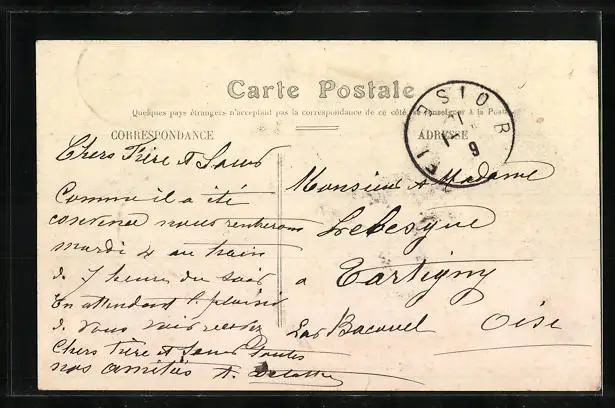 Carte Postale
Quelques pays étrangers n'acceptant pas la correspondance de ce côté, se renseigner à la Poste
CORRESPONDANCE
ADRESSE
Chers Frère et Sœur
Comme il a été
convenue nous rentrerons
mardi 4 au train
de 7 heures du soir
En attendant le plaisir
de vous voir recevez
Chers Frère et Sœur Toutes
nos amitiés A.
Monsieur & Madame
Lebesgue
a Tartigny
Par Bacouel Oise